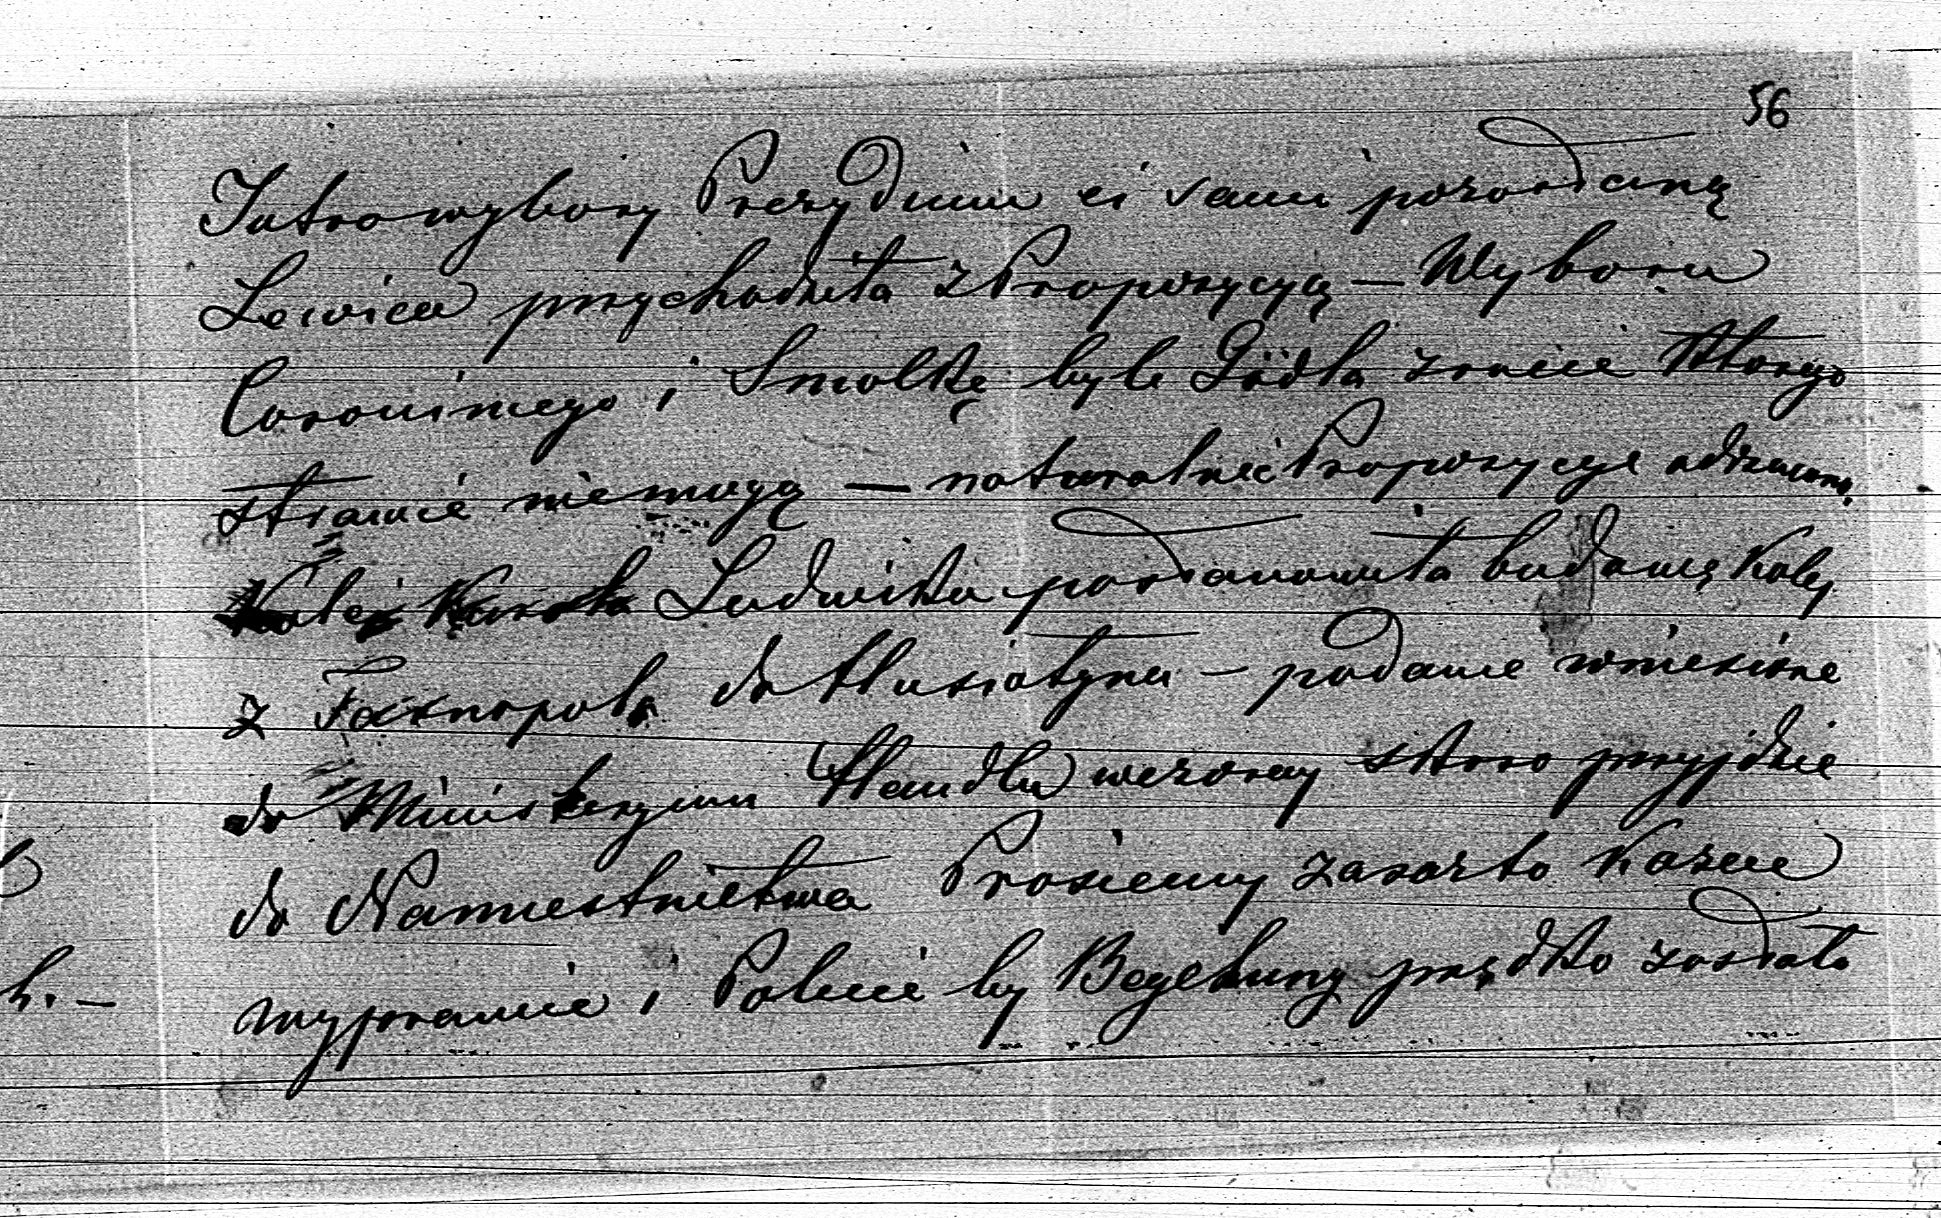 56
Jutro wybory Prezydium ci sami pozostaną
Lewica przychodziła z Propozycyą — Wyboru
Coroniniego i Smolkę byle Gödla zrucić Którego
strawić niemogą — naturalnie Propozycye odrzucono.
Kolej Karola Ludwika postanowiła budowę Kolej
z Tarnopola do Husiatyna — podanie wniesione
do Ministeryum Handlu wczoraj skoro przyjdzie
do Namiestnictwa Prosiemy zaraz to Każcie
wyprawić i Polecić by Begehung prędko została
h. —